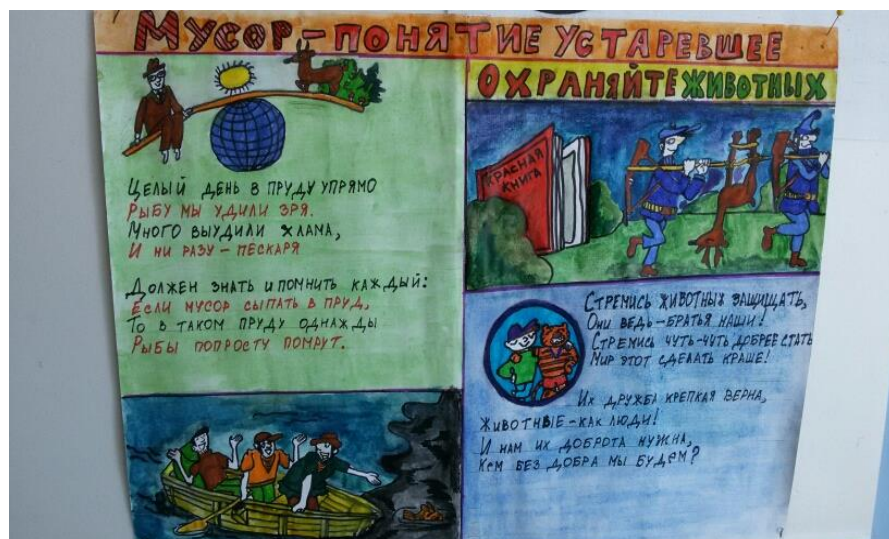 МУСОР-ПОНЯТИЕ УСТАРЕВШЕЕ
ЦЕЛЫЙ ДЕНЬ В ПРУДУ УПРЯМО
РЫБУ МЫ УДИЛИ ЗРЯ.
МНОГО ВЫУДИЛИ ХЛАМА,
И НИ РАЗУ - ПЕСКАРЯ
ДОЛЖЕН ЗНАТЬ И ПОМНИТЬ КАЖДЫЙ:
ЕСЛИ МУСОР СЫПАТЬ В ПРУД,
ТО В ТАКОМ ПРУДУ ОДНАЖДЫ
РЫБЫ ПОПРОСТУ ПОМРУТ.
ОХРАНЯЙТЕ ЖИВОТНЫХ
КРАСНАЯ
КНИГА
СТРЕМИСЬ ЖИВОТНЫХ ЗАЩИЩАТЬ,
ОНИ ВЕДЬ - БРАТЬЯ НАШИ!
СТРЕМИСЬ ЧУТЬ-ЧУТЬ ДОБРЕЕ СТАТЬ
МИР ЭТОТ СДЕЛАТЬ КРАШЕ!
ИХ ДРУЖБА КРЕПКАЯ ВЕРНА,
ЖИВОТНЫЕ - КАК ЛЮДИ!
И НАМ ИХ ДОБРОТА НУЖНА,
КЕМ БЕЗ ДОБРА МЫ БУДЕМ?